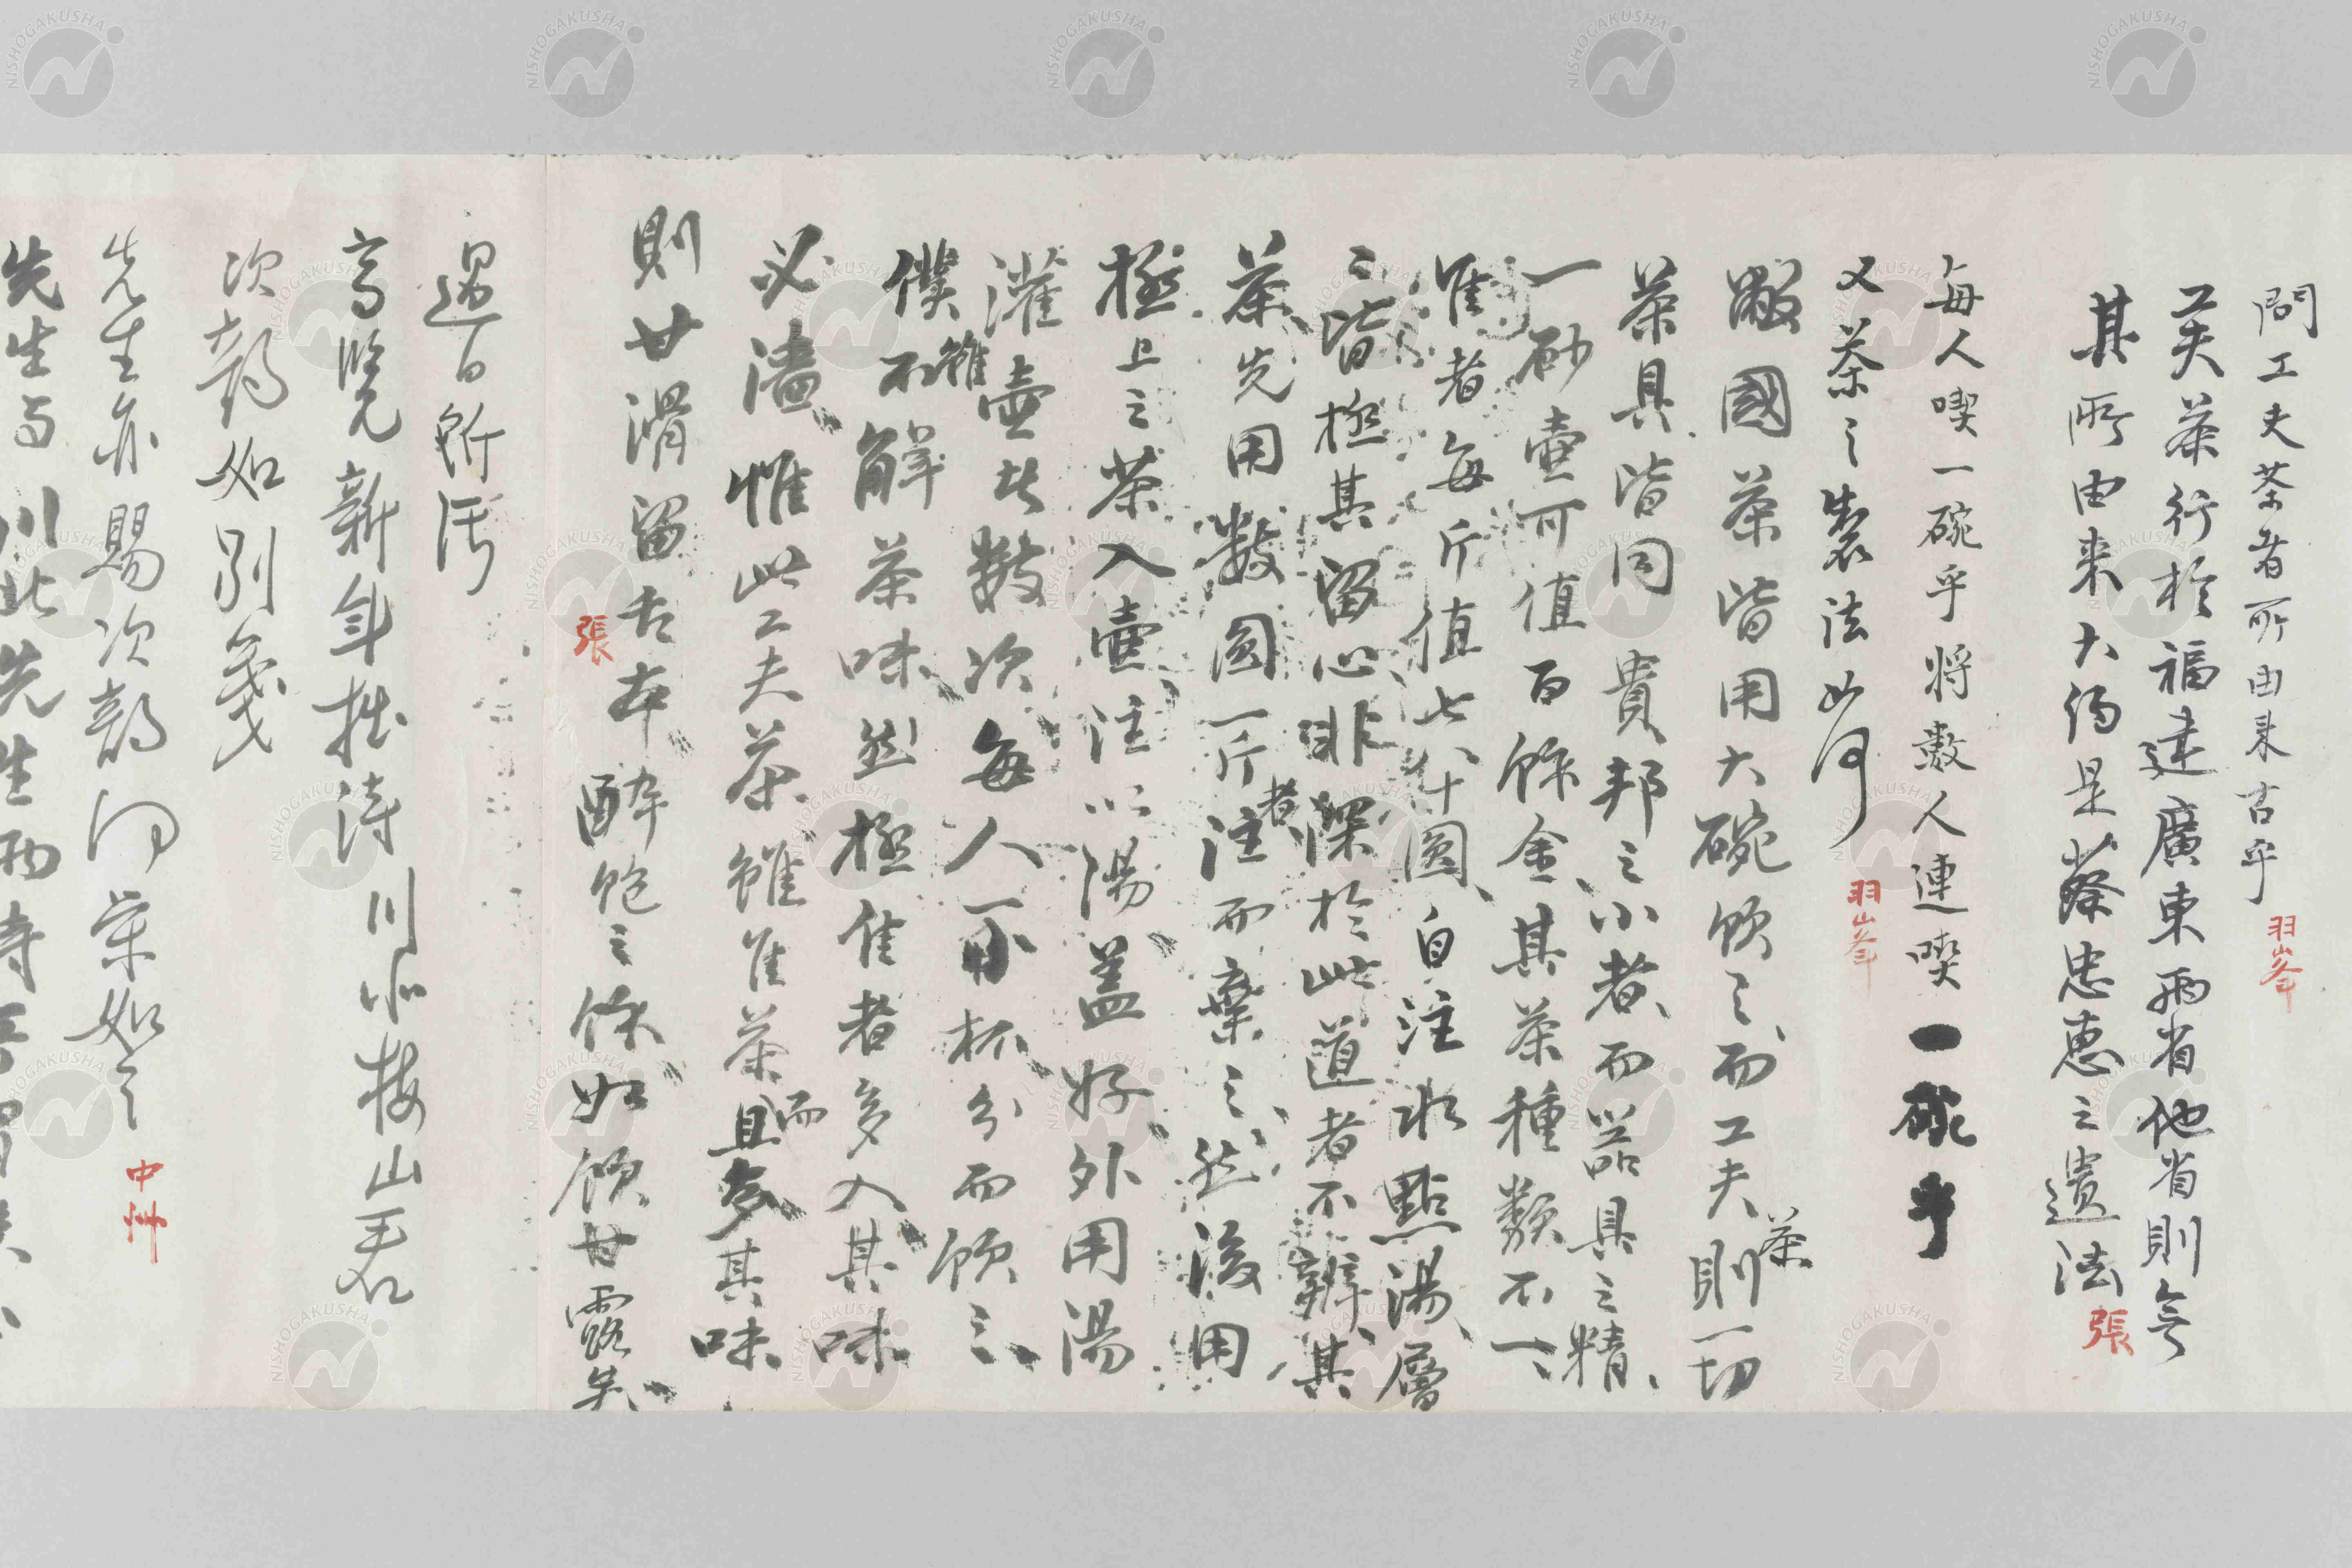 問工夫茶者所由来古乎 羽峯
工夫茶行於福建廣東兩省他省則無
其所由来大約是蔡忠惠之遺法 張
每人喫一碗乎将數人連喫一碗乎
又茶之製法如何 羽峯
敝國茶皆用大碗飲之而工夫茶則一切
茶具皆同貴邦之小者而器具之精
一砂壺可值百餘金其茶種類不一
佳者每斤值七八十圓自注水點湯層
〻皆極其留心非深於此道者不辨其
茶先用數圓一斤者注而棄之然後用
極上之茶入壺注以湯蓋好外用湯
灌壺其數次每人一小杯分而飲之
僕雖不解茶味然極佳者多入其味
必濇惟此工夫茶雖佳茶而且多其味
則甘滑留舌本醉飽之餘如飲甘露矣
張
過日所

高覽新年拙詩川北梅山君
次韵如別箋
先生亦賜次韵何榮如之 中洲
先生与川北先生兩
NISHOGAKUSHA